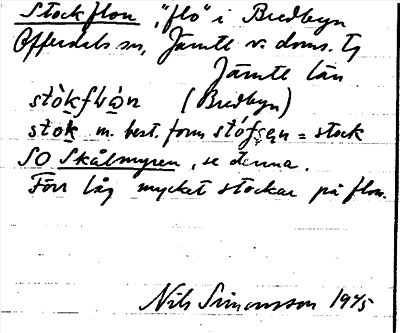 Stockflon, "flo" i Bredbyn
Offerdals sn, Jämtl v. doms. tg
Jämtl län
stòkflòn (Bredbyn)
stok m. best. form = stock
SO Skålmyren, se denna.
Förr låg mycket stockar på flon.
Nils Simonsson 1945